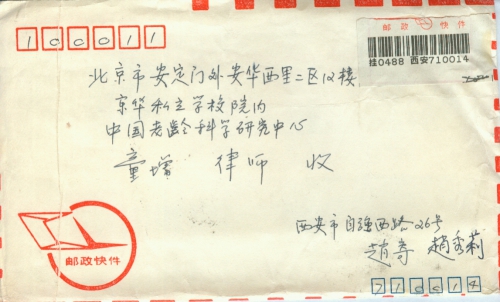 100011
邮政快件
挂0488 西安710014
北京市安定门外安华西里二区12楼
京华私立学校院内
中国老龄科学研究中心
童增 律师 收
西安市自强西路26号
赵奇 赵秀莉
邮政快件
710014